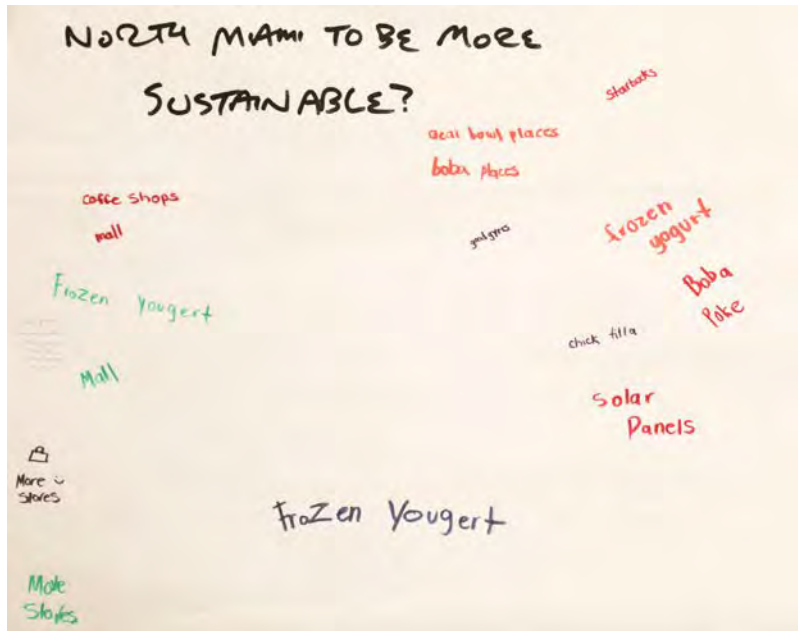 NORTH MIAMI TO BE MORE
SUSTAINABLE?
Starbucks
acai bowl places
boba places
coffe shops
mall
frozen
yogurt
Frozen Yougert
Boba
Poke
chick filla
Mall
Solar
Panels
More
Stores
Frozen Yougert
More
Stores